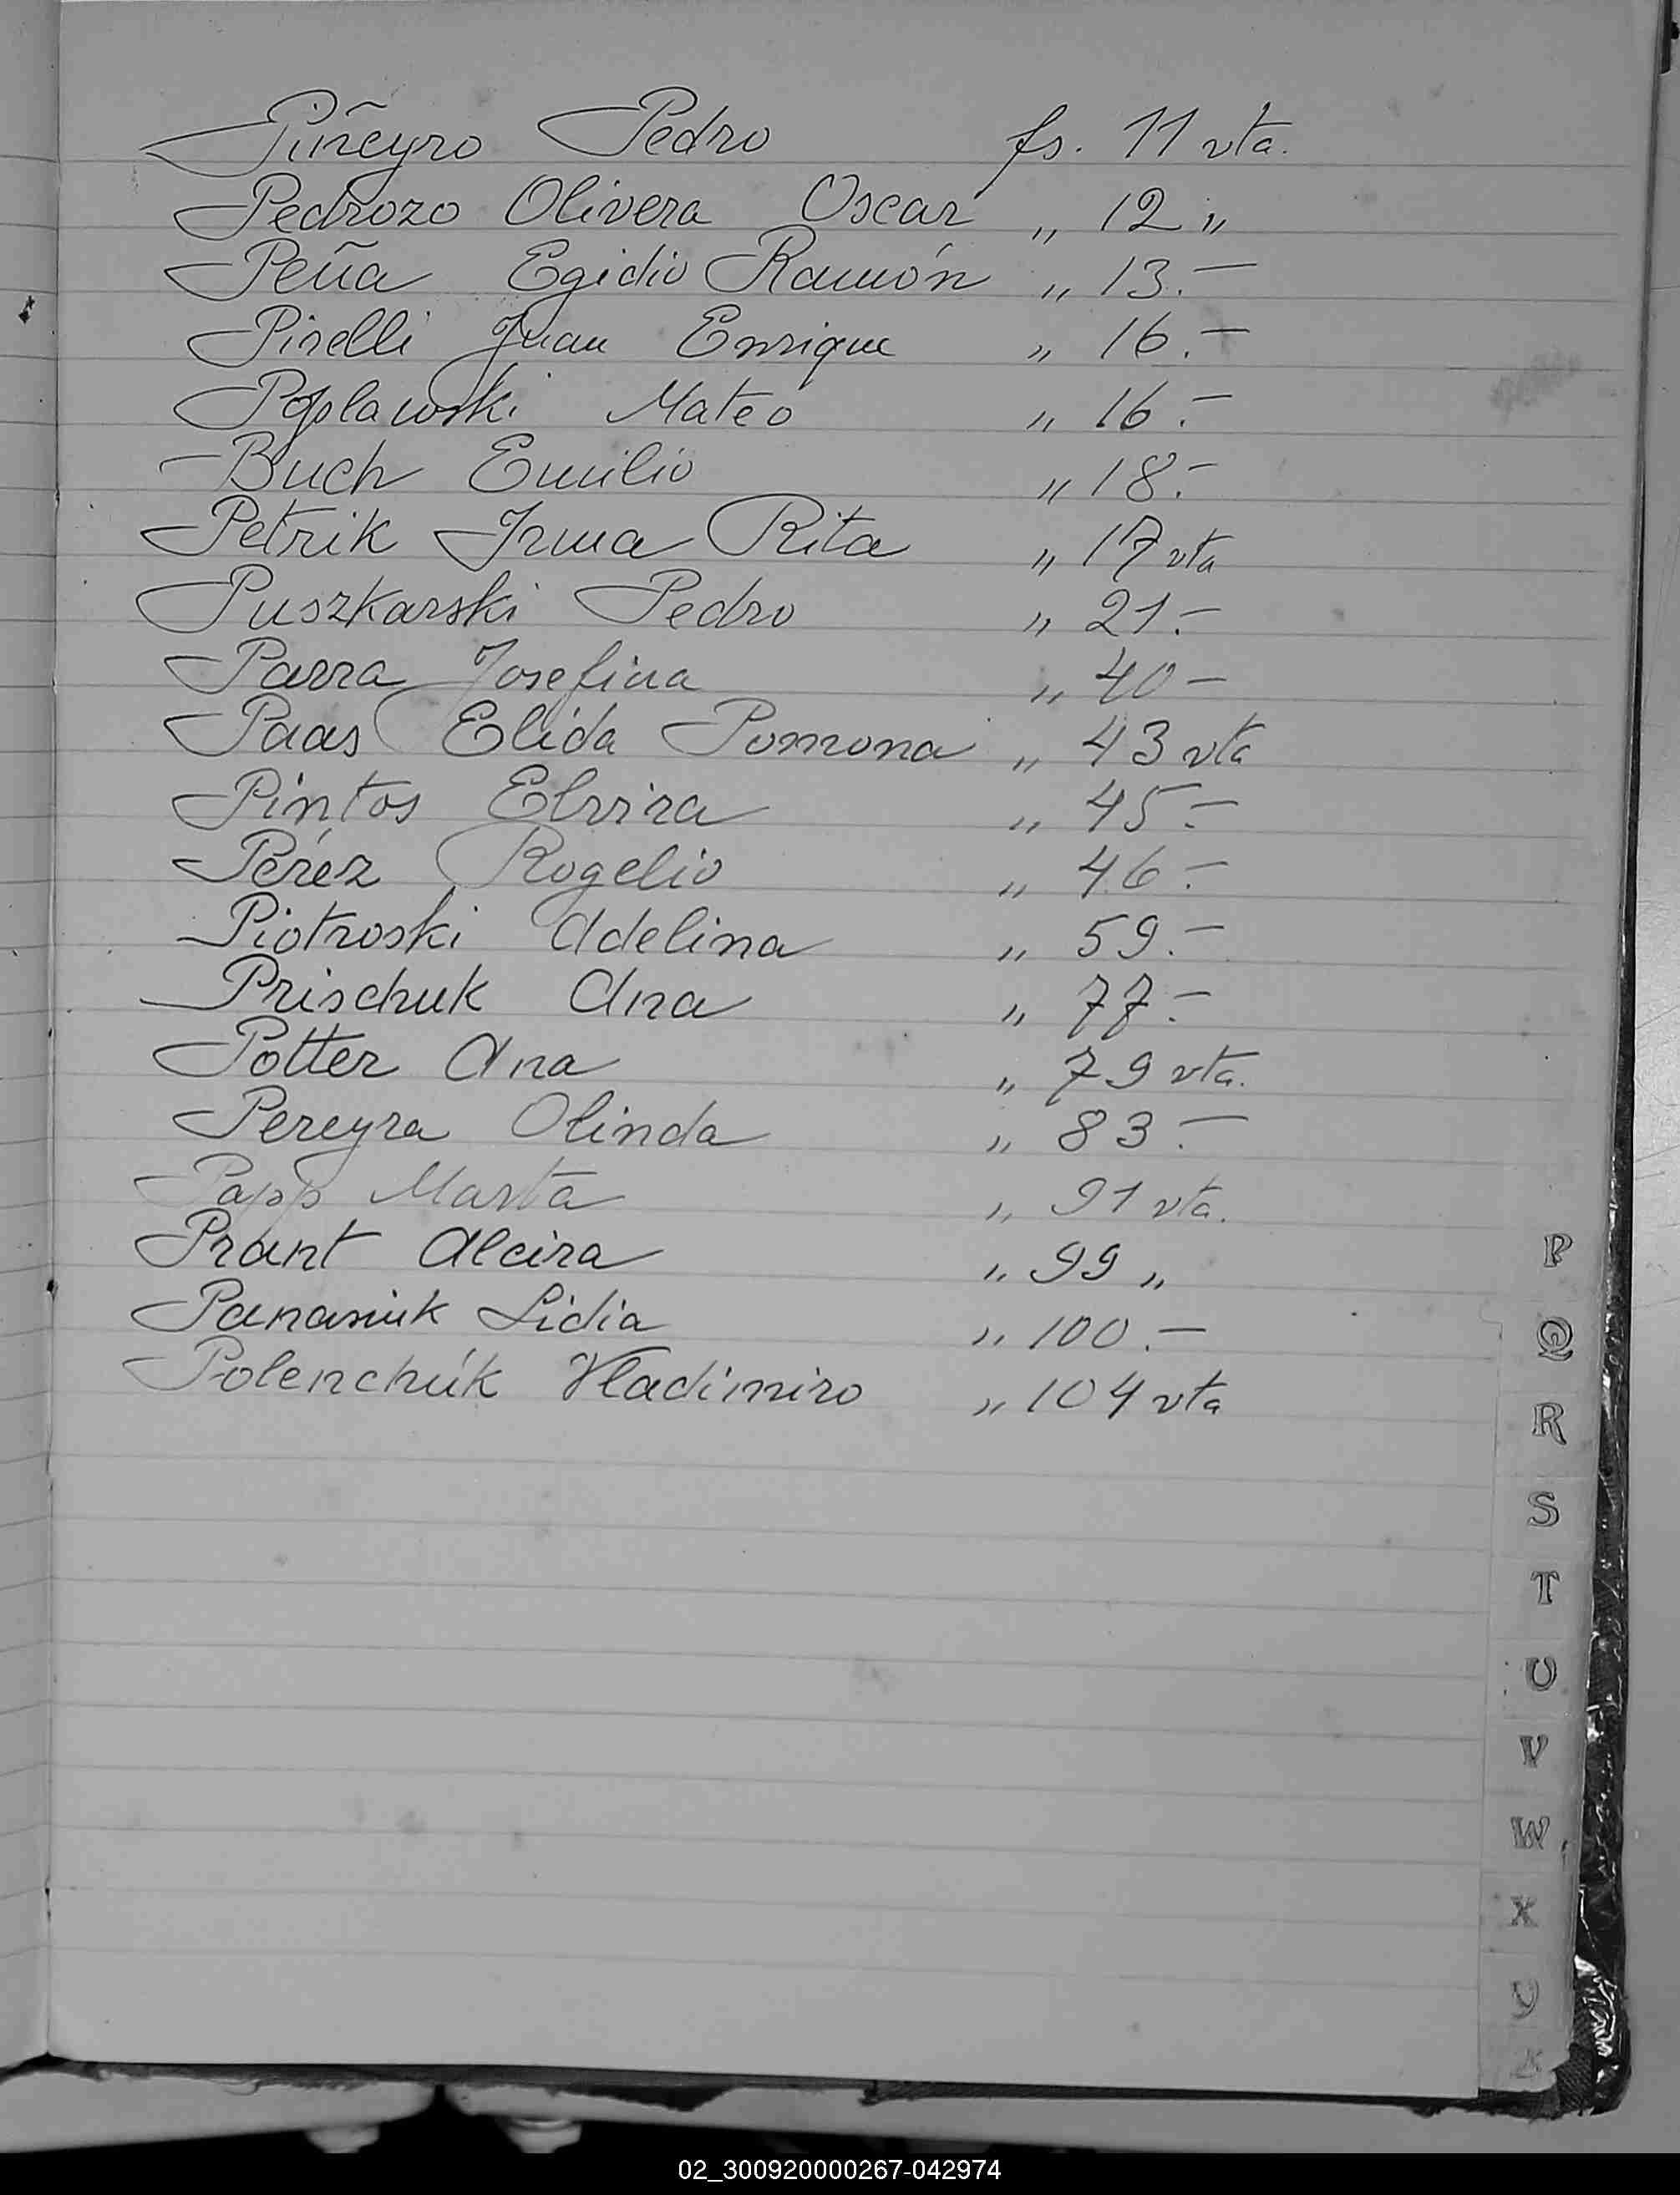 Piñeyro Pedro fs. 11 vta.
Pedrozo Olivera Oscar „ 12 „
Peña Egidio Ramón „ 13.—
Pirelli Juan Enrique „ 16.—
Poplawski Mateo „ 16.—
Buch Emilio „ 18.—
Petrik Irma Rita „ 17 vta
Puszkarski Pedro „ 21.—
Parra Josefina „ 40—
Paas Elida Pomona „ 43 vta
Pintos Elvira „ 45.—
Pérez Rogelio „ 46.—
Piotroski Adelina „ 59.—
Prischuk Ana „ 77.—
Potter Ana „ 79 vta.
Pereyra Olinda „ 83.—
Papp Marta „ 91 vta.
Prant Alcira „ 99 „
Panasiuk Lidia „ 100.—
Polenchuk Vladimiro „ 104 vta
P
Q
R
S
T
U
V
W
X
Y
Z
02_300920000267-042974